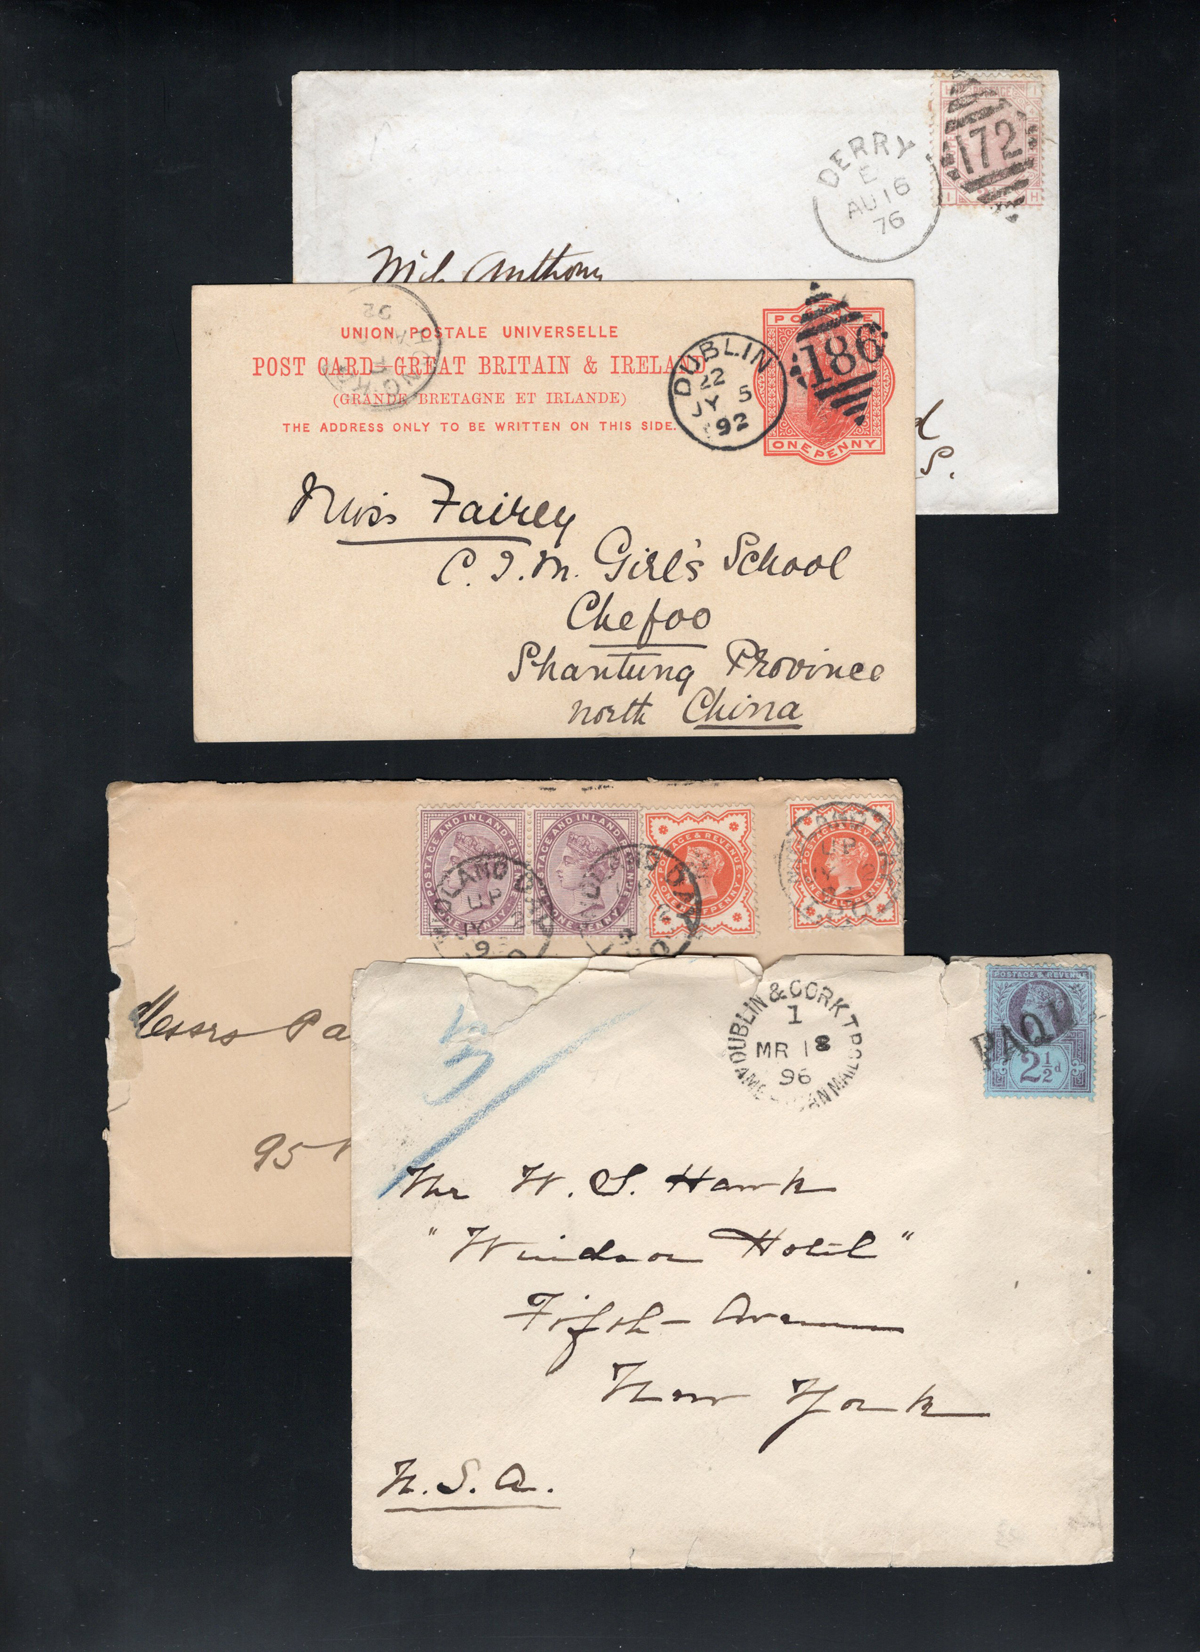 DERRY
E
AU 16
76
172
I H
Anthony
S.
UNION POSTALE UNIVERSELLE
POST CARD GREAT BRITAIN & IRELAND
(GRANDE BRETAGNE ET IRLANDE)
THE ADDRESS ONLY TO BE WRITTEN ON THIS SIDE.
DUBLIN
22
JY 5
92
186
ONE PENNY
Miss Fairey
C. I. M. Girl's School
Chefoo
Shantung Province
North China
POSTAGE AND INLAND
ONE PENNY
POSTAGE AND INLAND
ONE PENNY
POSTAGE & REVENUE
Messrs
95
DUBLIN & CORK T.P.O.
1
MR 18
96
AMERICAN MAIL
POSTAGE & REVENUE
PAQ
2½d
W. S. Hawk
"Windsor Hotel"
Fifth Avenue
New York
U.S.A.